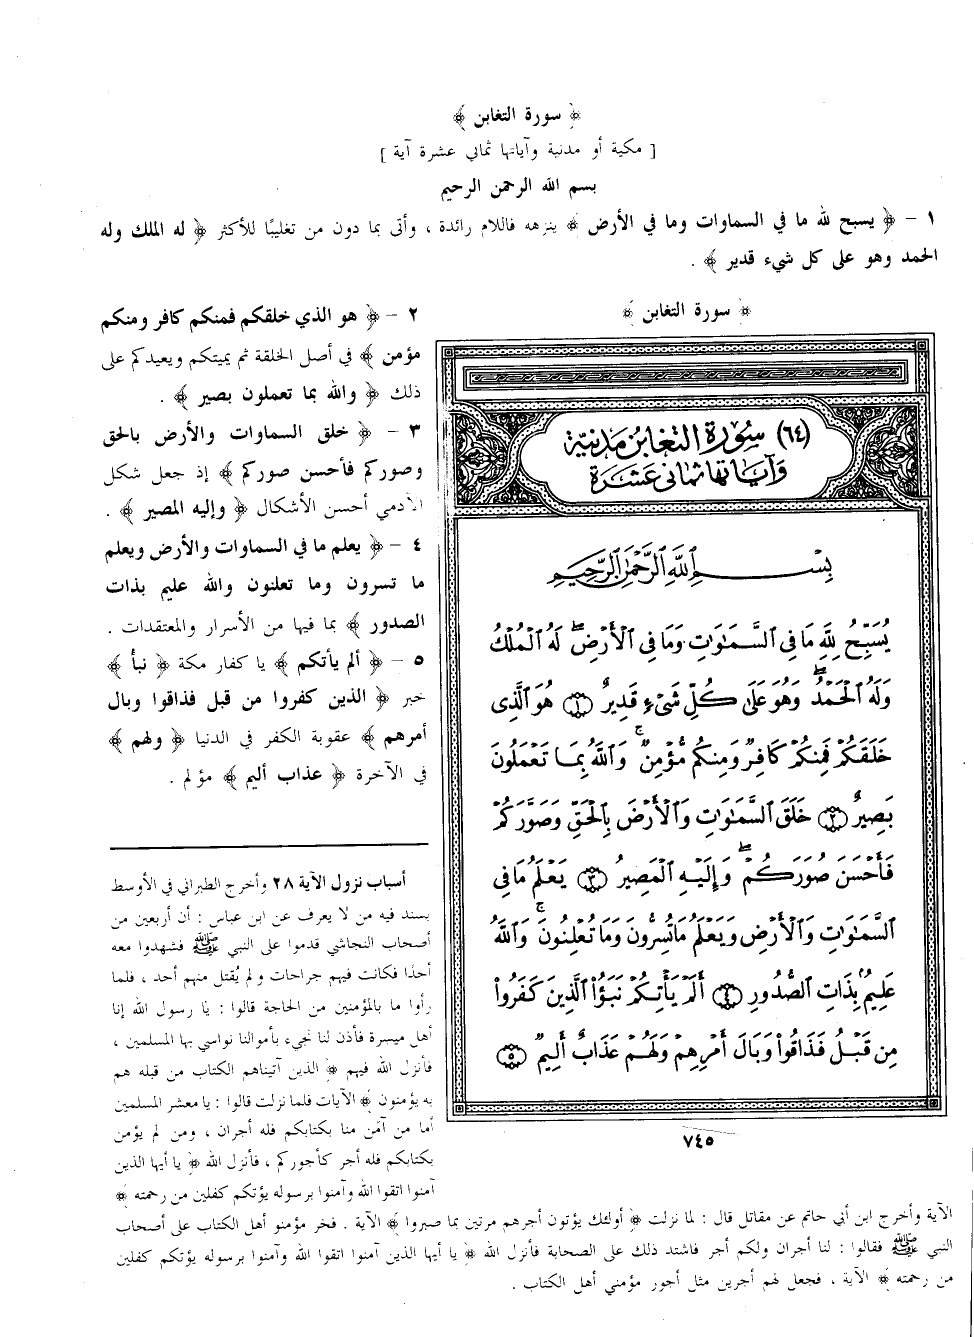 ﴿ سورة التغابن ﴾
[ مكية أو مدنية وآياتها ثماني عشرة آية ]
بسم الله الرحمن الرحيم
١ - ﴿ يسبح لله ما في السماوات وما في الأرض ﴾ ينزهه فاللام زائدة ، وأتى بما دون من تغليبًا للأكثر ﴿ له الملك وله
الحمد وهو على كل شيء قدير ﴾ .
﴿ سورة التغابن ﴾
(٦٤) سُورَة التغابن مَدنيّة
وَآيَاتهَا ثمَانِي عَشرَة
بِسْمِ اللَّهِ الرَّحْمَٰنِ الرَّحِيمِ
يُسَبِّحُ لِلَّهِ مَا فِي السَّمَٰوَٰتِ وَمَا فِي الْأَرْضِ ۖ لَهُ الْمُلْكُ
وَلَهُ الْحَمْدُ ۖ وَهُوَ عَلَىٰ كُلِّ شَيْءٍ قَدِيرٌ ١ هُوَ الَّذِي
خَلَقَكُمْ فَمِنكُمْ كَافِرٌ وَمِنكُم مُّؤْمِنٌ ۚ وَاللَّهُ بِمَا تَعْمَلُونَ
بَصِيرٌ ٢ خَلَقَ السَّمَٰوَٰتِ وَالْأَرْضَ بِالْحَقِّ وَصَوَّرَكُمْ
فَأَحْسَنَ صُوَرَكُمْ ۖ وَإِلَيْهِ الْمَصِيرُ ٣ يَعْلَمُ مَا فِي
السَّمَٰوَٰتِ وَالْأَرْضِ وَيَعْلَمُ مَا تُسِرُّونَ وَمَا تُعْلِنُونَ ۚ وَاللَّهُ
عَلِيمٌ بِذَاتِ الصُّدُورِ ٤ أَلَمْ يَأْتِكُمْ نَبَؤُا الَّذِينَ كَفَرُوا
مِن قَبْلُ فَذَاقُوا وَبَالَ أَمْرِهِمْ وَلَهُمْ عَذَابٌ أَلِيمٌ ٥
٧٤٥
٢ - ﴿ هو الذي خلقكم فمنكم كافر ومنكم
مؤمن ﴾ في أصل الخلقة ثم يميتكم ويعيدكم على
ذلك ﴿ والله بما تعملون بصير ﴾ .
٣ - ﴿ خلق السماوات والأرض بالحق
وصوركم فأحسن صوركم ﴾ إذ جعل شكل
الآدمي أحسن الأشكال ﴿ وإليه المصير ﴾ .
٤ - ﴿ يعلم ما في السماوات والأرض ويعلم
ما تسرون وما تعلنون والله عليم بذات
الصدور ﴾ بما فيها من الأسرار والمعتقدات .
٥ - ﴿ ألم يأتكم ﴾ يا كفار مكة ﴿ نبأ ﴾
خبر ﴿ الذين كفروا من قبل فذاقوا وبال
أمرهم ﴾ عقوبة الكفر في الدنيا ﴿ ولهم ﴾
في الآخرة ﴿ عذاب أليم ﴾ مؤلم .
أسباب نزول الآية ٢٨ وأخرج الطبراني في الأوسط
بسند فيه من لا يعرف عن ابن عباس : أن أربعين من
أصحاب النجاشي قدموا على النبي ﷺ فشهدوا معه
أحدًا فكانت فيهم جراحات ولم يُقتل منهم أحد ، فلما
رأوا ما بالمؤمنين من الحاجة قالوا : يا رسول الله إنا
أهل ميسرة فأذن لنا نجيء بأموالنا نواسي بها المسلمين ،
فأنزل الله فيهم ﴿ الذين آتيناهم الكتاب من قبله هم
به يؤمنون ﴾ الآيات فلما نزلت قالوا : يا معشر المسلمين
أما من آمَن منا بكتابكم فله أجران ، ومن لم يؤمن
بكتابكم فله أجر كأجوركم ، فأنزل الله ﴿ يا أيها الذين
آمنوا اتقوا الله وآمنوا برسوله يؤتكم كفلين من رحمته ﴾
الآية وأخرج ابن أبي حاتم عن مقاتل قال : لما نزلت ﴿ أولئك يؤتون أجرهم مرتين بما صبروا ﴾ الآية . فخر مؤمنو أهل الكتاب على أصحاب
النبي ﷺ فقالوا : لنا أجران ولكم أجر فاشتد ذلك على الصحابة فأنزل الله ﴿ يا أيها الذين آمنوا اتقوا الله وآمنوا برسوله يؤتكم كفلين
من رحمته ﴾ الآية ، فجعل لهم أجرين مثل أجور مؤمني أهل الكتاب .